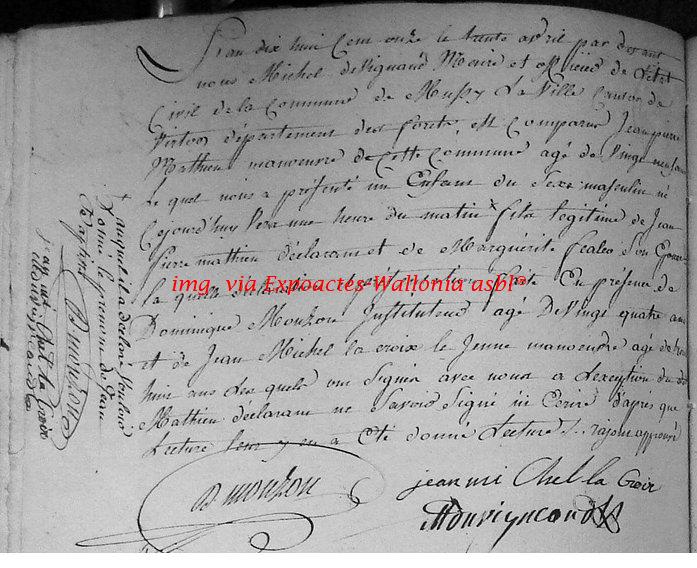 L'an dix huit cent onze le trente avril par devant
nous Michel Devignaud Maire et officier de L'état
Civil de la Commune de Mussy La Ville Canton de
Virton département des forets, est Comparu Jean pierre
Mathieu manoeuvre de cette Commune agé de vingt neuf ans
Le quel nous a présenté un Enfant du Sexe masculin né
Cejourd'huy vers une heure du matin fils légitime de Jean
Pierre mathieu déclarant et de Marguérite
la quelle
img. via Expoactes-Wallonia asbl®
En présence de
Dominique Mouzon Instituteur agé De Vingt quatre ans
et de Jean Michel la croix le Jeune manoeuvre agé de
huit ans Les quels ont Signé avec nous a L'exception du dit
Mathieu déclarant ne Savoir Signé ni Ecrire d'après que
Lecture Leur y en a été donné Lecture
auquel il a déclaré Vouloir
Donné le prenom de
D mouzon
jean mi Chel la Croix
D mouzon
jean mi Chel la Croix